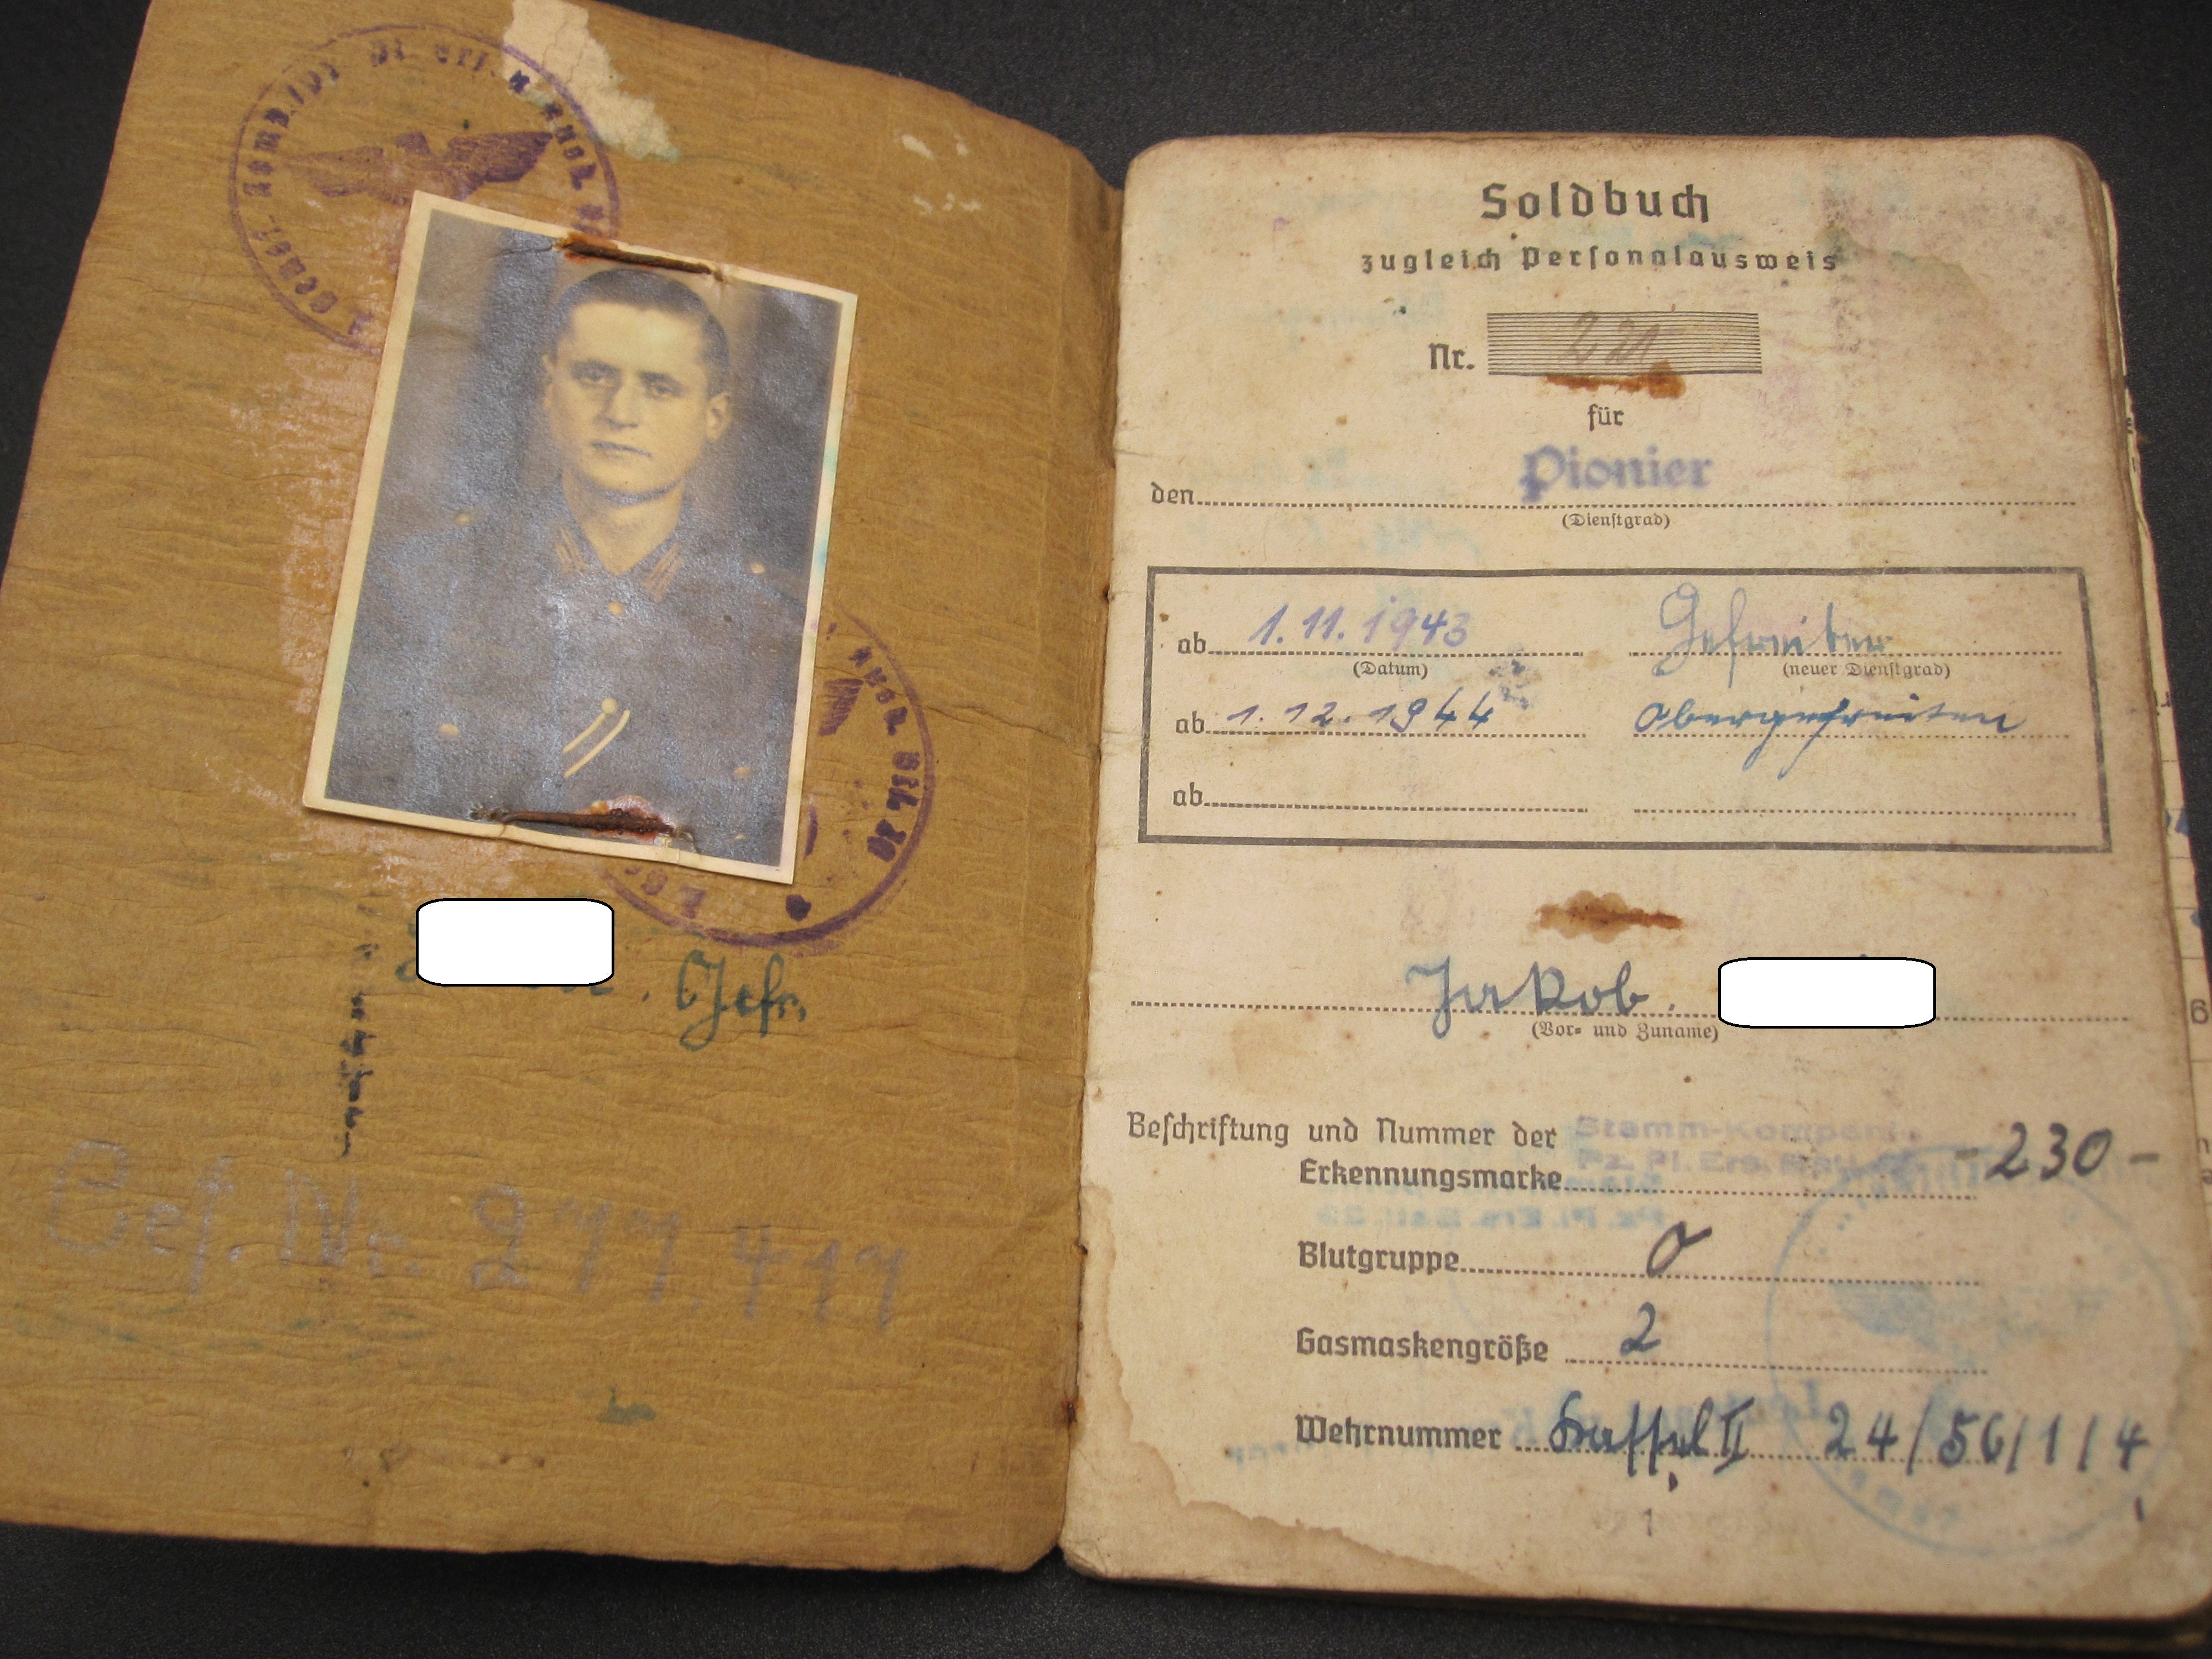 Gefr.
Gef. Nr. 277.417
Soldbuch
zugleich Personalausweis
Nr. 221
für
den Pionier
(Dienstgrad)
ab 1.11.1943 Gefreiter
(Datum) (neuer Dienstgrad)
ab 1.12.1944 Obergefreiten
ab
Jakob.
(Vor- und Zuname)
Beschriftung und Nummer der Stamm-Kompanie
Erkennungsmarke Pz. Pi. Ers. -230-
Blutgruppe O
Gasmaskengröße 2
Wehrnummer Kassel II 24/56/1/4
1